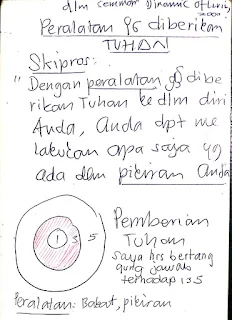 dlm seminar Dynamic of Living
2000
Peralatan yg diberikan
TUHAN
Skipros:
"Dengan peralatan yg dibe
rikan Tuhan ke dlm diri
Anda, Anda dpt me
lakukan apa saja yg
ada dlm pikiran Anda
1 3 5
Pemberian
Tuhan
saya hrs bertang
gung jawab
terhadap 135
Peralatan: Bakat, pikiran